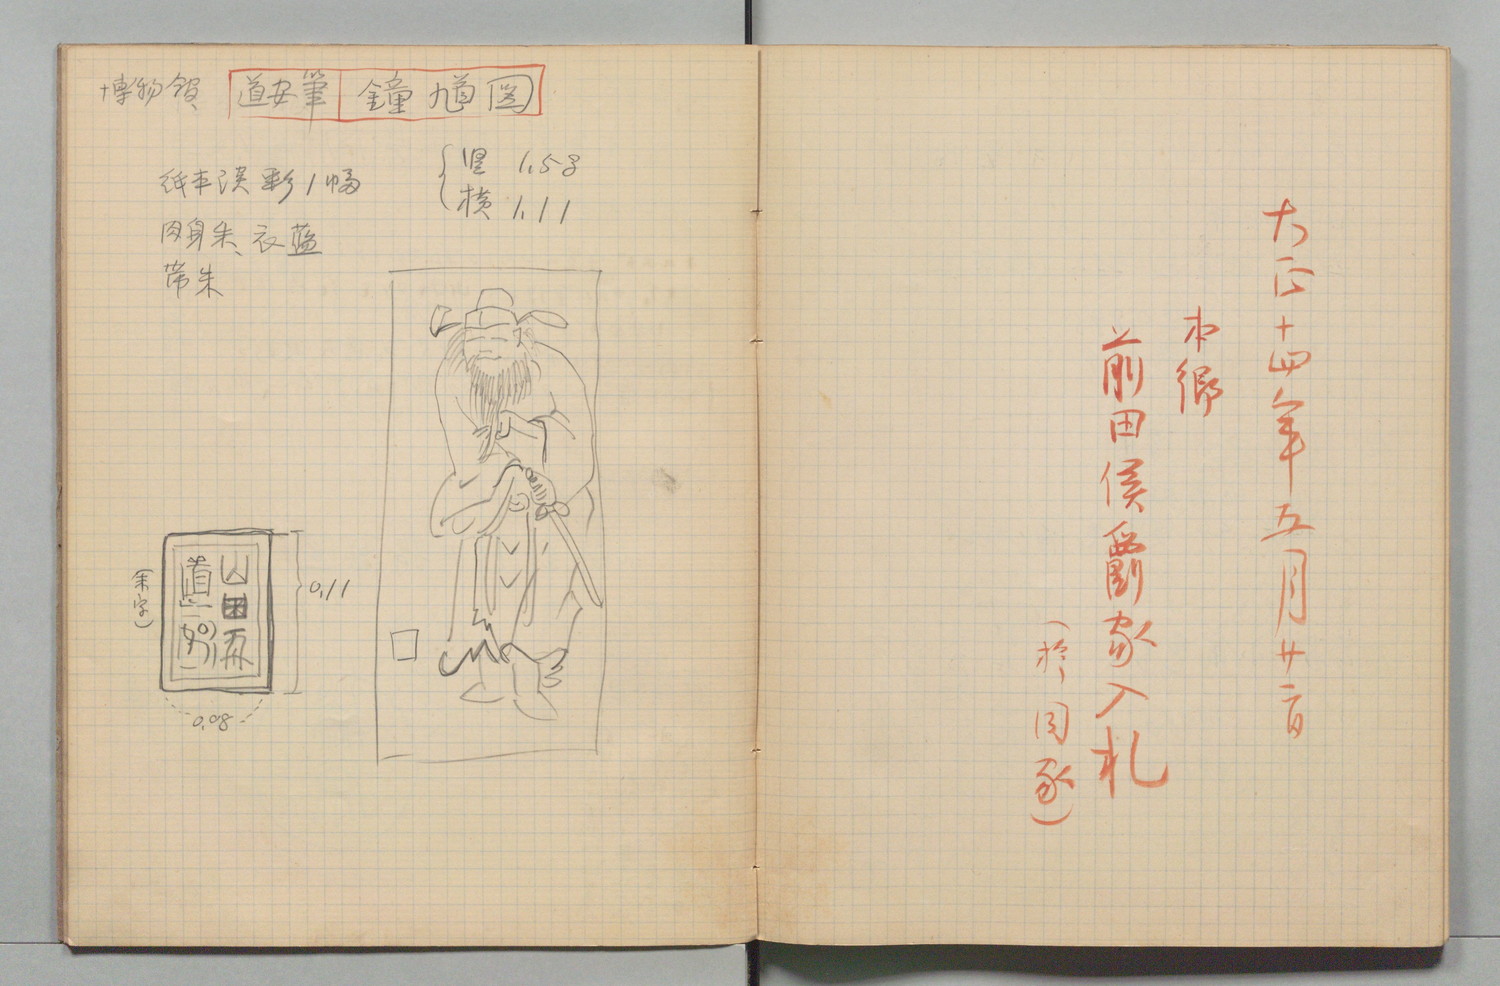 博物館、 道安筆 鐘馗図
紙本淡彩1幅
竪 1,53
横 1,11
肉身朱、衣藍
帯朱
山田
道安
(朱字)
0,11
0,08
大正十四年五月廿二日
本郷
前田侯爵家入札
(於、同家)